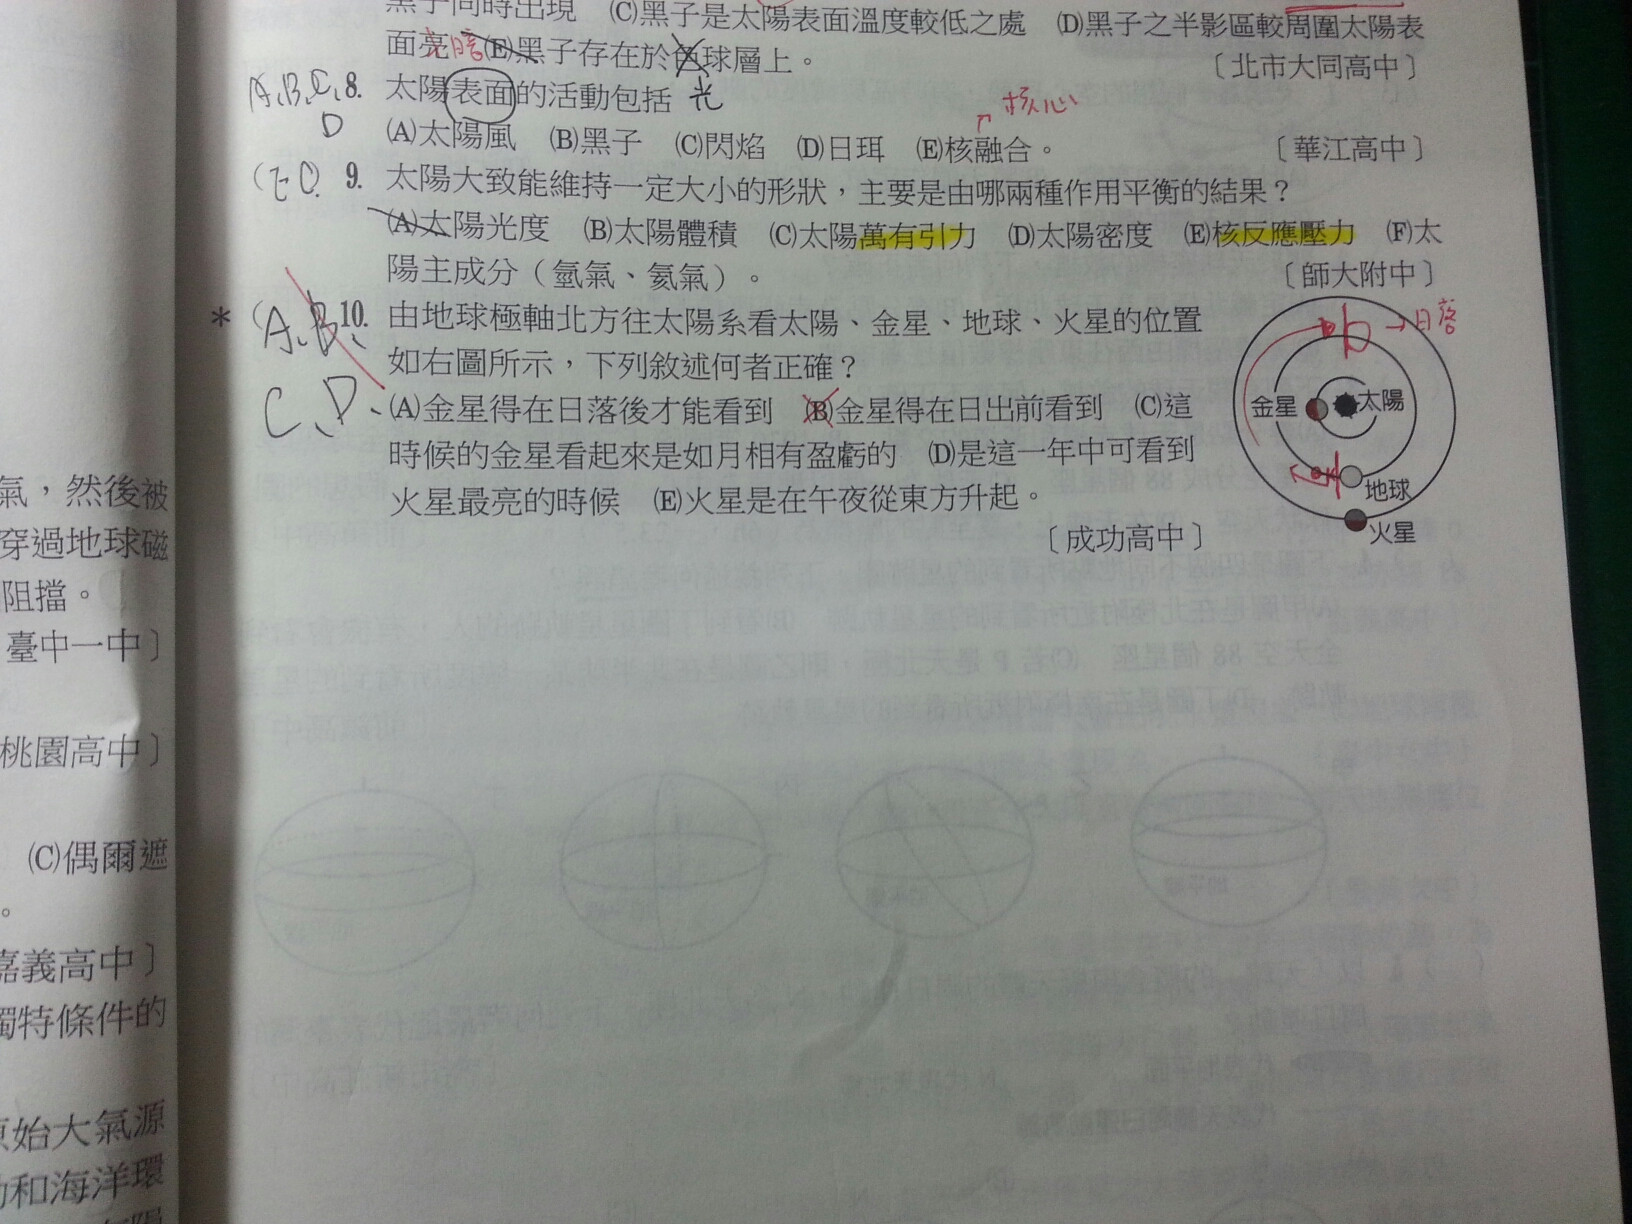 氣，然後被
穿過地球磁
阻擋。
臺中一中〕
桃園高中〕
(C)偶爾遮
。
嘉義高中〕
獨特條件的
原始大氣源
和海洋環
黑子同時出現 (C)黑子是太陽表面溫度較低之處 (D)黑子之半影區較周圍太陽表
面亮 暗 (E)黑子存在於色球層上。 〔北市大同高中〕
光
A、B、C、D 8. 太陽表面的活動包括
核心
(A)太陽風 (B)黑子 (C)閃焰 (D)日珥 (E)核融合。 〔華江高中〕
(E C 9. 太陽大致能維持一定大小的形狀，主要是由哪兩種作用平衡的結果？
(A)太陽光度 (B)太陽體積 (C)太陽萬有引力 (D)太陽密度 (E)核反應壓力 (F)太
陽主成分（氫氣、氦氣）。 〔師大附中〕
* (A、B、C、D、 10. 由地球極軸北方往太陽系看太陽、金星、地球、火星的位置
如右圖所示，下列敘述何者正確？
(A)金星得在日落後才能看到 (B)金星得在日出前看到 (C)這
時候的金星看起來是如月相有盈虧的 (D)是這一年中可看到
火星最亮的時候 (E)火星是在午夜從東方升起。
〔成功高中〕
日落
金星
太陽
地球
火星